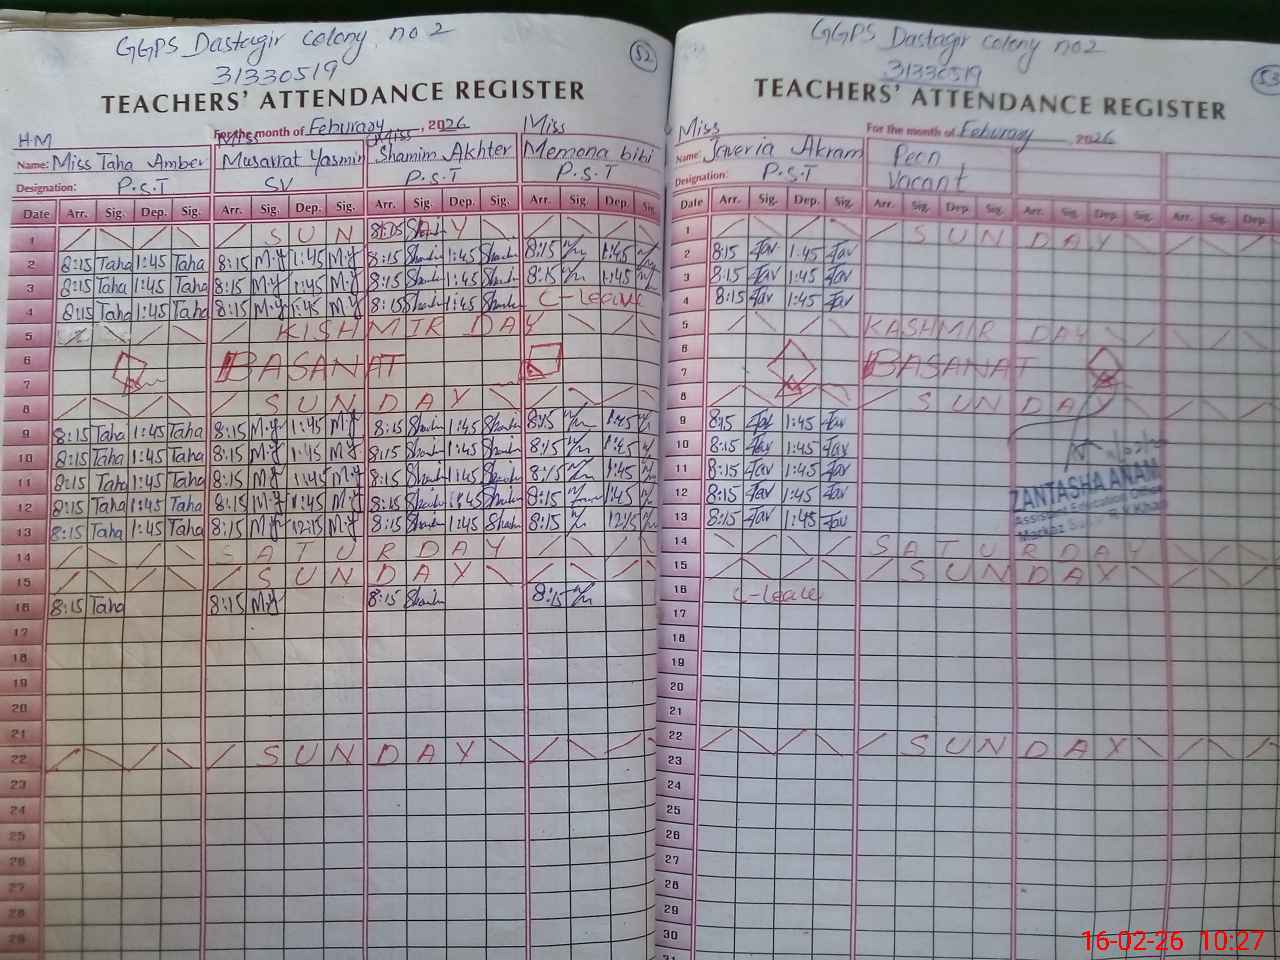 GGPS Dastagir colony no 2
31330519
52
TEACHERS' ATTENDANCE REGISTER
For the month of Feburary, 2026
HM Miss Miss Miss
Name: Miss Taha Amber Musarrat Yasmin Shamim Akhter Memona bibi
Designation: P.S.T SV P.S.T P.S.T
Date Arr. Sig. Dep. Sig. Arr. Sig. Dep. Sig. Arr. Sig. Dep. Sig. Arr. Sig. Dep. Sig.
1 SUN 8:15 Y
2 8:15 Taha 1:45 Taha 8:15 M.Y 1:45 M.Y 8:15 1:45 8:15 1:45
3 8:15 Taha 1:45 Taha 8:15 M.Y 1:45 M.Y 8:15 1:45 8:15 1:45
4 8:15 Taha 1:45 Taha 8:15 M.Y 1:45 M.Y 8:15 1:45 C-Leave
5 KISHMIR DAY
6 BASANAT
7
8 SUNDAY
9 8:15 Taha 1:45 Taha 8:15 M.Y 1:45 M.Y 8:15 1:45 8:15 1:45
10 8:15 Taha 1:45 Taha 8:15 M.Y 1:45 M.Y 8:15 1:45 8:15 1:45
11 8:15 Taha 1:45 Taha 8:15 M.Y 1:45 M.Y 8:15 1:45 8:15 1:45
12 8:15 Taha 1:45 Taha 8:15 M.Y 1:45 M.Y 8:15 1:45 8:15 1:45
13 8:15 Taha 1:45 Taha 8:15 M.Y 12:15 M.Y 8:15 1:45 8:15 12:15
14 SATURDAY
15 SUNDAY
16 8:15 Taha 8:15 M.Y 8:15 8:15
17
18
19
20
21
22 SUNDAY
23
24
25
26
27
28
29
GGPS Dastagir colony no 2
31330519
53
TEACHERS' ATTENDANCE REGISTER
For the month of Feburary 2026
Miss
Name: Javeria Akram Peon
Designation: P.S.T Vacant
Date Arr. Sig. Dep. Sig. Arr. Sig. Dep. Sig. Arr. Sig. Dep. Sig. Arr. Sig. Dep.
1 SUNDAY
2 8:15 Jav 1:45 Jav
3 8:15 Jav 1:45 Jav
4 8:15 Jav 1:45 Jav
5 KASHMIR DAY
6 BASANAT
7
8 SUNDAY
9 8:15 Jav 1:45 Jav
10 8:15 Jav 1:45 Jav
11 8:15 Jav 1:45 Jav
12 8:15 Jav 1:45 Jav
13 8:15 Jav 1:45 Jav
ZANTASHA ANAM
Assistant Education Officer
Markaz R Y Khan
14 SATURDAY
15 SUNDAY
16 C-leave
17
18
19
20
21
22 SUNDAY
23
24
25
26
27
28
29
30
31
16-02-26 10:27